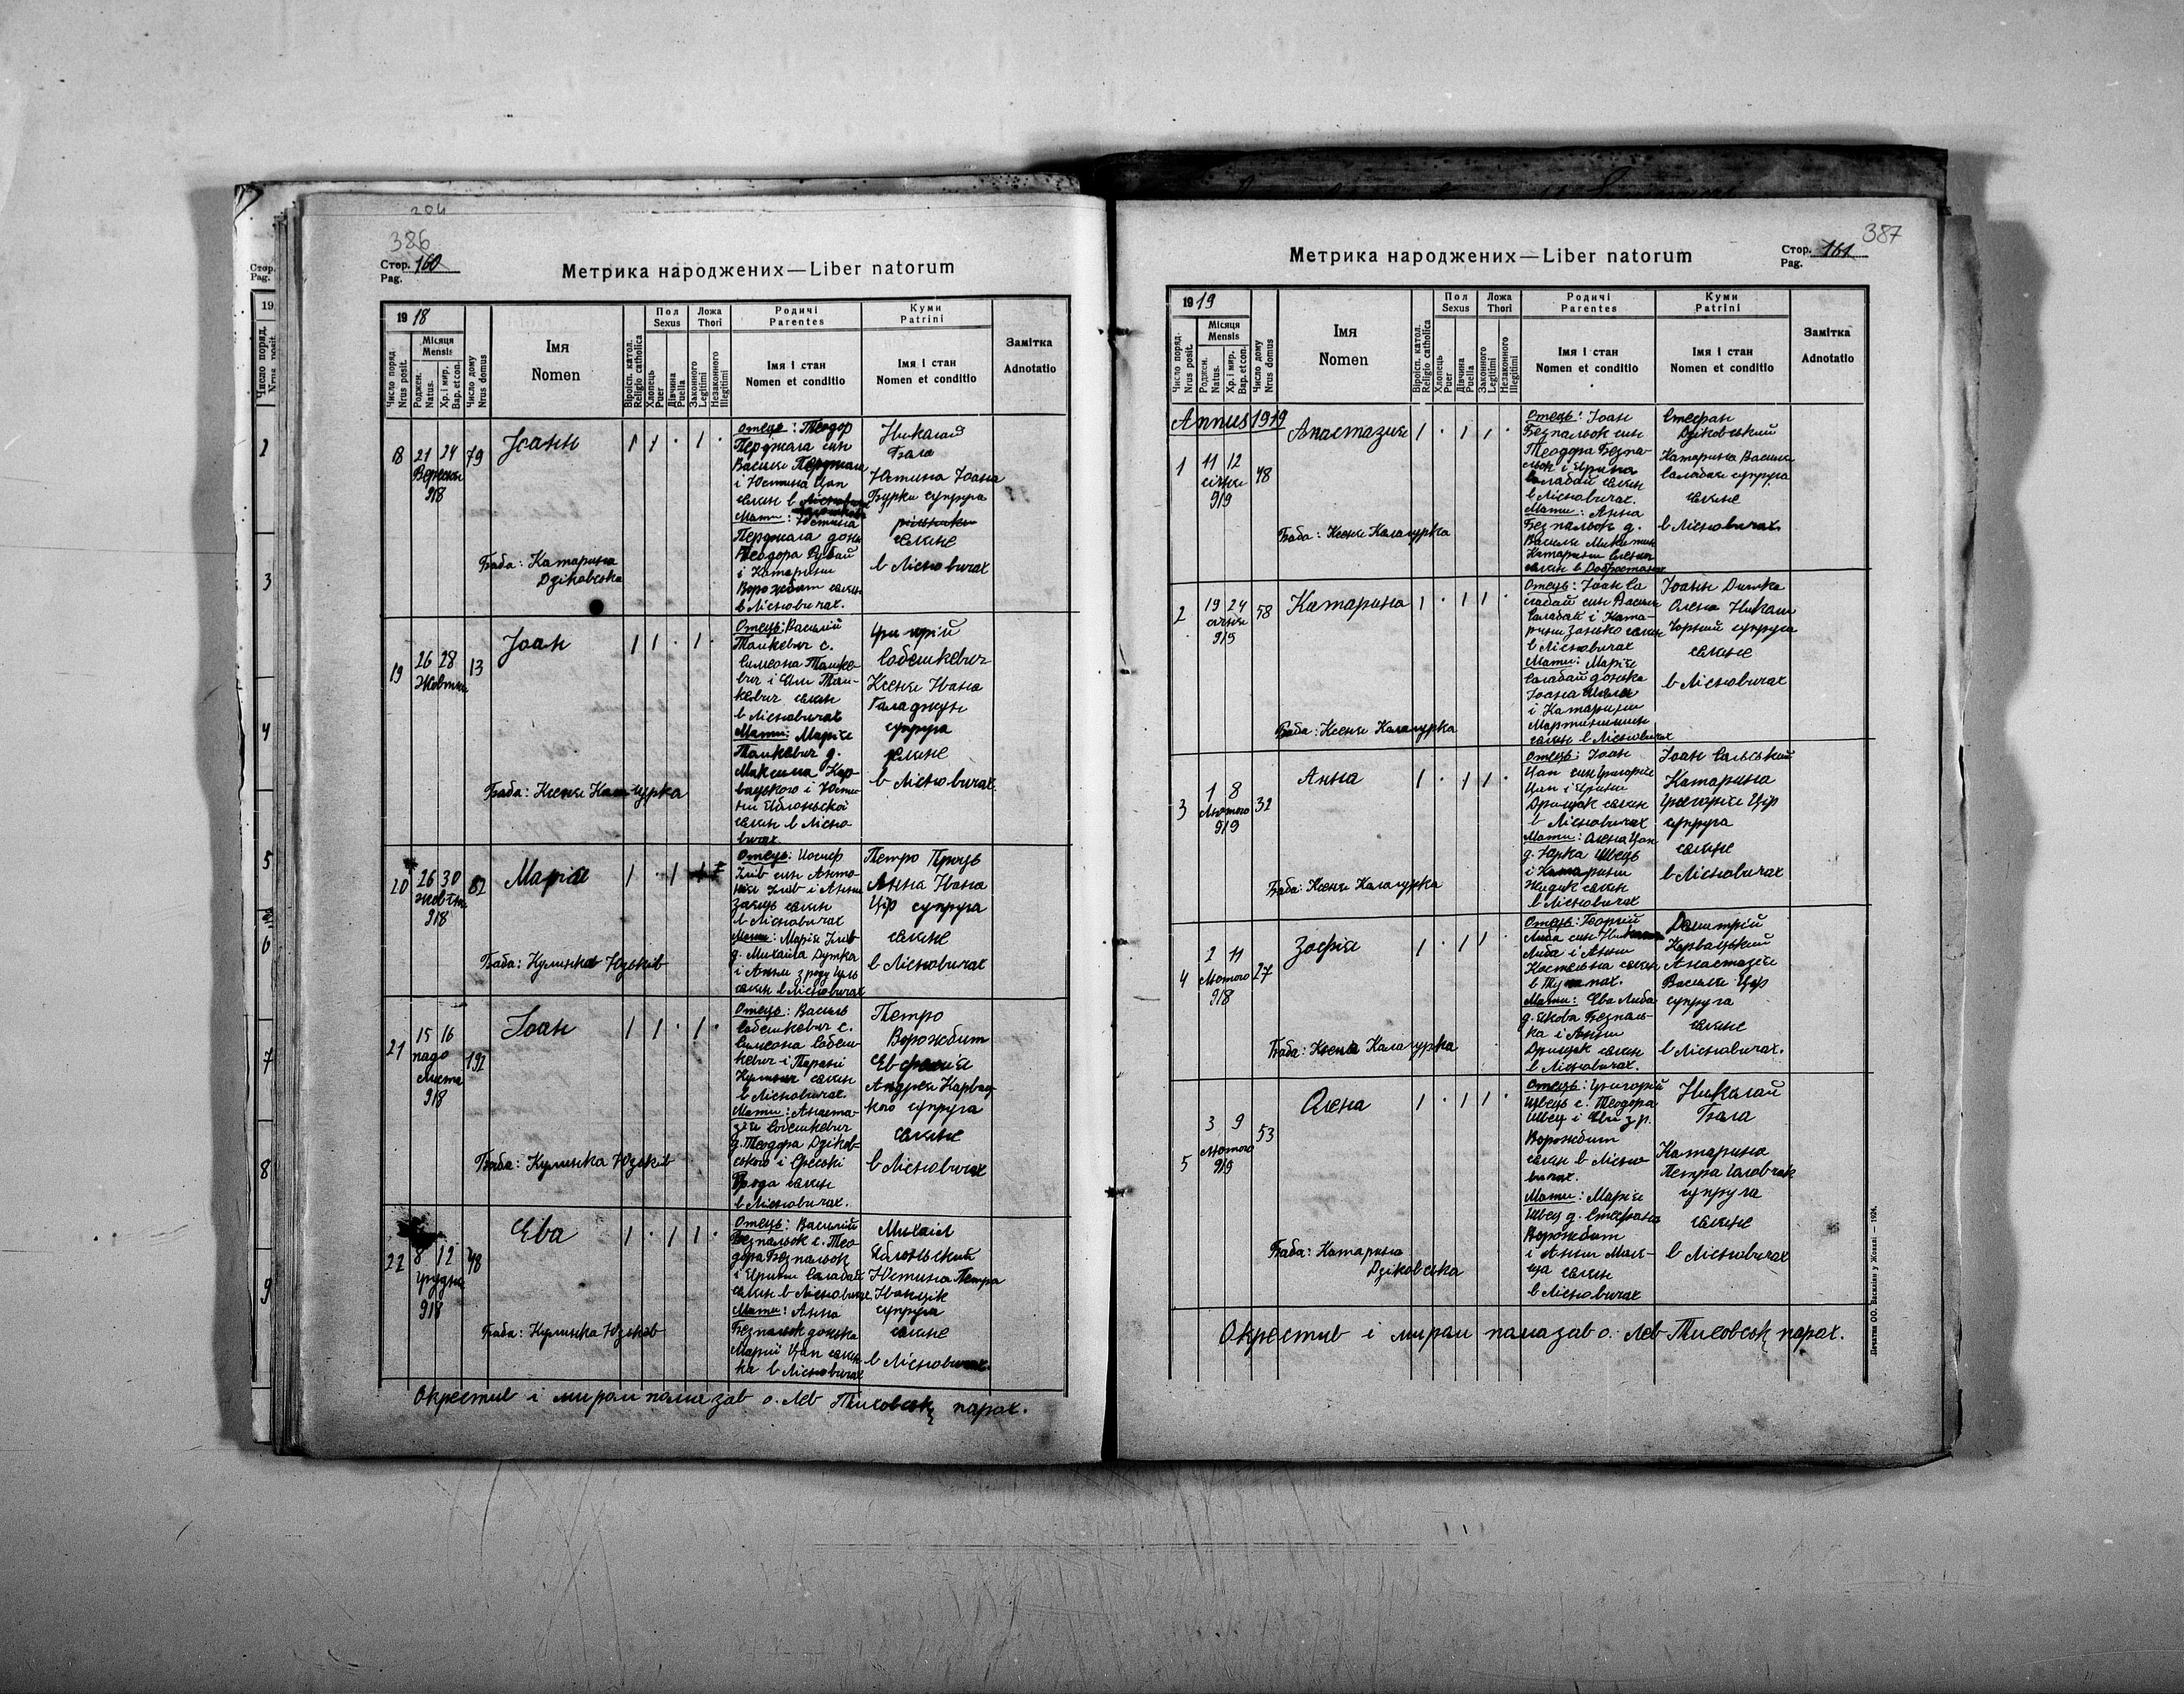 204
386
Стор. 160
Pag.
Метрика народжених — Liber natorum
1918
Число поряд.
Nrus posit.
Місяця
Mensis
Роджен.
Natus.
Хр. і мир.
Bap. et con.
Число дому
Nrus domus
Імя
Nomen
Віроісп. катол.
Religio catholica
Пол
Sexus
Хлопець
Puer
Дівчина
Puella
Ложа
Thori
Законного
Legitimi
Незаконного
Illegitimi
Родичі
Parentes
Імя і стан
Nomen et conditio
Куми
Patrini
Імя і стан
Nomen et conditio
Замітка
Adnotatio
18 21 24 79
Вересня
918
Іоанн
1 1 · 1 ·
Отець: Теодор
Перджала син
Василя Перджала
і Юстина Цап
селян в
Мати: Юстина
Перджала донь
Теодора
і Катарини
Ворожбит селян
в Лісновичах.
Николай
Бала
Юстина Іоана
Бурки супруга
селяне
в Лісновичах
Баба: Катарина
Дзіковська
19 26 28 13
Жовтня
Іоан
1 1 · 1 ·
Отець: Василій
Танкевич с.
Симеона Танке-
вич і Єви Тан-
кевич селян
в Лісновичах
Мати: Марія
Танкевич д.
Максима Кар-
вацького і Юсти-
ни Яблоньської
селян в Лісно-
вичах.
Григорій
Собешкевич
Ксеня Івана
Галаджун
супруга
селяне
в Лісновичах.
Баба: Ксеня Калагурка
20 26 30 82
Жовтня
918
Марія
1 · 1
Отець: Йосиф
син Анто-
нія і Анни
Заяць селян
в Лісновичах
Мати: Марія
д. Михаила Дутка
і Анни з роду Цуль
селян в Лісновичах
Петро Проць
Анна Івана
Цір супруга
селяне
в Лісновичах
Баба: Кулинка Юзьків
21 15 16 192
падо
листа
918
Іоан
1 1 · 1 ·
Отець: Василь
Собешкевич с.
Симеона Собеш-
кевич і Парані
селян
в Лісновичах.
Мати: Анаста-
зія Собешкевич
д. Теодора Дзіков-
ського і
Брода селян
в Лісновичах.
Петро
Ворожбит
Евфемія
Андрея Карвац-
кого супруга
селяне
в Лісновичах
Баба: Кулинка Юзьків
22 8 12 48
грудня
918
Ева
1 · 1 1 ·
Отець: Василій
Безпальок с. Тео-
дора Безпальок
і Ярини Салабай
селян в Лісновичах
Мати: Анна
Безпальок донька
Марії Цап селян-
ка в Лісновичах
Михаил
Яблоньский
Юстина Петра
Іванцік
супруга
селяне
в Лісновичах
Баба: Кулинка Юзьків
Окрестив і миром помазав о. Лев Тиховськ парох.
387
Стор. 161
Pag.
Метрика народжених — Liber natorum
1919
Число поряд.
Nrus posit.
Місяця
Mensis
Роджен.
Natus.
Хр. і мир.
Bap. et con.
Число дому
Nrus domus
Імя
Nomen
Віроісп. катол.
Religio catholica
Пол
Sexus
Хлопець
Puer
Дівчина
Puella
Ложа
Thori
Законного
Legitimi
Незаконного
Illegitimi
Родичі
Parentes
Імя і стан
Nomen et conditio
Куми
Patrini
Імя і стан
Nomen et conditio
Замітка
Adnotatio
Annus 1919
1 11 12 48
січня
919
Анастазия
1 · 1 1 ·
Отець: Іоан
Безпальок син
Теодора Безпа-
льок і Ярина
Салабай селян
в Лісновичах.
Мати: Анна
Безпальок д.
Василя Микитин
Катарини
селян в Добростанах
Стефан
Дзіковський
Катарина Василя
Салабая супруга
селяне
в Лісновичах
Баба: Ксеня Калагурка
2 19 24 58
січня
919
Катарина
1 · 1 1 ·
Отець: Іоан Са
лабай син Василя
Салабай і Ката-
рини Занько селян
в Лісновичах
Мати: Марія
Салабай донька
Іоана
і Катарини
Мартинишин
селян в Лісновичах
Іоанн Димка
Олена Николи
Чорний супруга
селяне
в Лісновичах
Баба: Ксеня Калагурка
3 1 8 32
Лютого
919
Анна
1 · 1 1 ·
Отець: Іоан
Цап син Григорія
Цап і Ярини
Дрищак селян
в Лісновичах
Мати: Олена Цап
д. Юрка Швець
і Катарини
Жидик селян
в Лісновичах
Іоан Сальський
Катарина
Григорія Цір
супруга
селяне
в Лісновичах
Баба: Ксеня Калагурка
4 2 11 27
Лютого
918
Зофія
1 · 1 1 ·
Отець: Георгій
Либа син
Либа і Анни
Костельна селян
в
Мати: Ева Либа
д. Якова Безпаль-
ка і Анни
Дрищак селян
в Лісновичах.
Димитрій
Карвацький
Анастазія
Василя Цір
супруга
селяне
в Лісновичах.
Баба: Ксеня Калагурка
5 3 9 53
Лютого
919
Олена
1 · 1 1 ·
Отець: Григорій
Швець с. Теодора
Швец і Єви з р.
Ворожбит
селян в Лісно-
вичах.
Мати: Марія
Швец д. Стефана
Ворожбит
і Анни
селян
в Лісновичах
Николай
Бала
Катарина
Петра Головчак
супруга
селяне
в Лісновичах
Баба: Катарина
Дзіковська
Окрестив і миром помазав о. Лев Тиховськ парох.
Печатня ОО. Василіян у Жовкві — 1924.
Стор.
Pag.
19
Число поряд.
Nrus posit.
2
3
4
5
6
7
8
9